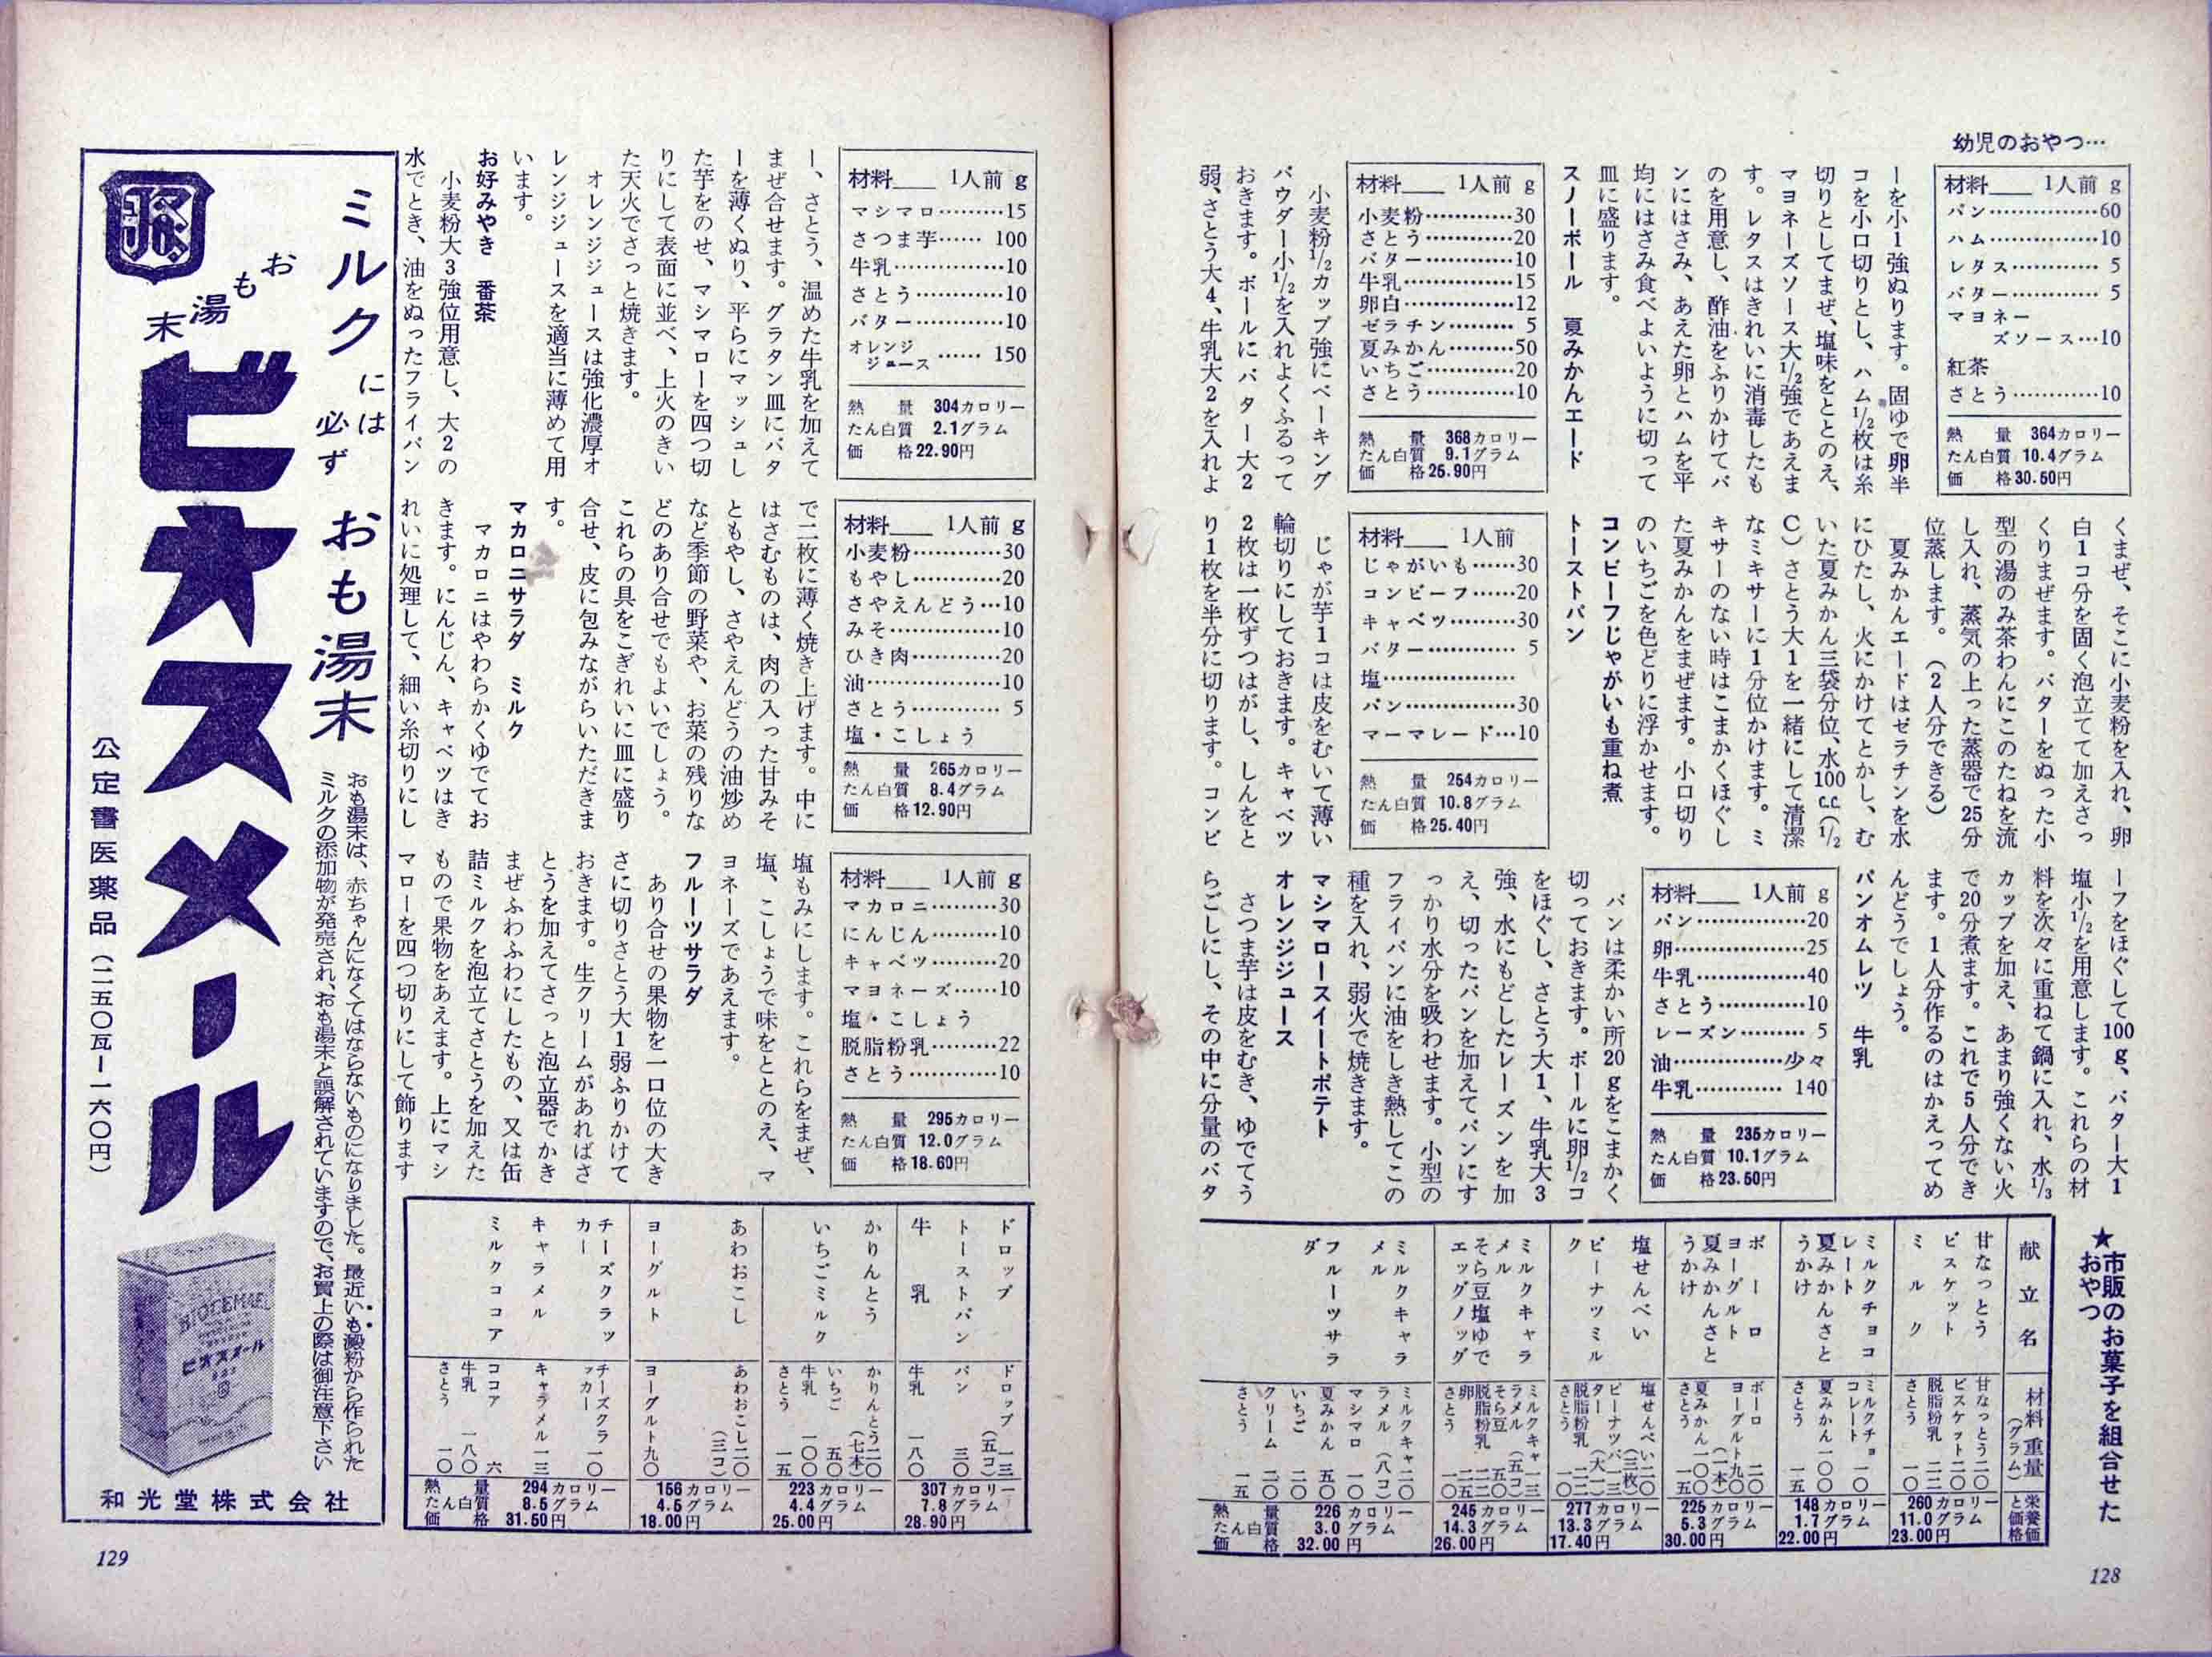 幼児のおやつ…
材料＿＿ 1人前 g
パン……………60
ハム……………10
レタス………… 5
バター………… 5
マヨネー
ズソース…10
紅茶
さとう…………10
熱　量 364カロリー
たん白質 10.4グラム
価　格30.50円
ーを小1強ぬります。固ゆで卵半
コを小口切りとし、ハム1/2枚は糸
切りとしてまぜ、塩味をととのえ、
マヨネーズソース大1/2強であえま
す。レタスはきれいに消毒したも
のを用意し、酢油をふりかけてパ
ンにはさみ、あえた卵とハムを平
均にはさみ食べよいように切って
皿に盛ります。
スノーボール　夏みかんエード
材料＿＿ 1人前 g
小麦粉…………30
さとう…………20
バター…………10
牛乳……………15
卵白……………12
ゼラチン……… 5
夏みかん………50
いちご…………20
さとう…………10
熱　量 368カロリー
たん白質 9.1グラム
価　格25.90円
小麦粉1/2カップ強にベーキング
パウダー小1/2を入れよくふるって
おきます。ボールにバター大2
弱、さとう大4、牛乳大2を入れよ
くまぜ、そこに小麦粉を入れ、卵
白1コ分を固く泡立てて加えさっ
くりまぜます。バターをぬった小
型の湯のみ茶わんにこのたねを流
し入れ、蒸気の上った蒸器で25分
位蒸します。（2人分できる）
夏みかんエードはゼラチンを水
にひたし、火にかけてとかし、む
いた夏みかん三袋分位、水100cc（1/2
C）さとう大1を一緒にして清潔
なミキサーに1分位かけます。ミ
キサーのない時はこまかくほぐし
た夏みかんをまぜます。小口切り
のいちごを色どりに浮かせます。
コンビーフじゃがいも重ね煮
トーストパン
材料＿＿ 1人前
じゃがいも……30
コンビーフ……20
キャベツ………30
バター………… 5
塩………………
パン……………30
マーマレード…10
熱　量 254カロリー
たん白質 10.8グラム
価　格25.40円
じゃが芋1コは皮をむいて薄い
輪切りにしておきます。キャベツ
2枚は一枚ずつはがし、しんをと
り1枚を半分に切ります。コンビ
ーフをほぐして100g、バター大1
塩小1/2を用意します。これらの材
料を次々に重ねて鍋に入れ、水1/3
カップを加え、あまり強くない火
で20分煮ます。これで5人分でき
ます。1人分作るのはかえってめ
んどうでしょう。
パンオムレツ　牛乳
材料＿＿ 1人前 g
パン……………20
卵………………25
牛乳……………40
さとう…………10
レーズン……… 5
油……………少々
牛乳………… 140
熱　量 235カロリー
たん白質 10.1グラム
価　格23.50円
パンは柔かい所20gをこまかく
切っておきます。ボールに卵1/2コ
をほぐし、さとう大1、牛乳大3
強、水にもどしたレーズンを加
え、切ったパンを加えてパンにす
っかり水分を吸わせます。小型の
フライパンに油をしき熱してこの
種を入れ、弱火で焼きます。
マシマロースイートポテト
オレンジジュース
さつま芋は皮をむき、ゆでてう
らごしにし、その中に分量のバタ
★市販のお菓子を組合せた
おやつ
献立名
材料重量（グラム）
栄養価と価格
甘なっとう
ビスケット
ミルク
甘なっとう二〇
ビスケット二〇
脱脂粉乳　二二
さとう　一〇
260カロリー
11.0グラム
23.00円
ミルクチョコ
レート
夏みかんさと
うかけ
ミルクチョ　一〇
コレート
夏みかん一〇〇
さとう　一五
148カロリー
1.7グラム
22.00円
ボーロ
ヨーグルト
夏みかんさと
うかけ
ボーロ　二〇
ヨーグルト九〇
（一本）
夏みかん一〇〇
さとう　一五
225カロリー
5.3グラム
30.00円
塩せんべい
ピーナツミル
ク
塩せんべい二〇
（三枚）
ピーナツバ一三
ター（大一）
脱脂粉乳　二二
さとう　一〇
277カロリー
13.3グラム
17.40円
ミルクキャラ
メル
そら豆塩ゆで
エッグノッグ
ミルクキャ一三
ラメル（五コ）
そら豆　五〇
脱脂粉乳　二二
卵　二五
さとう　一〇
245カロリー
14.3グラム
26.00円
ミルクキャラ
メル
フルーツサラ
ダ
ミルクキャ二〇
ラメル（八コ）
マシマロ　一〇
夏みかん　五〇
いちご　二〇
クリーム　二〇
さとう　一五
熱　量　226カロリー
たん白質　3.0グラム
価　格　32.00円
128
材料＿＿ 1人前 g
マシマロ………15
さつま芋…… 100
牛乳……………10
さとう…………10
バター…………10
オレンジ
ジュース …… 150
熱　量 304カロリー
たん白質 2.1グラム
価　格22.90円
ー、さとう、温めた牛乳を加えて
まぜ合せます。グラタン皿にバタ
ーを薄くぬり、平らにマッシュし
た芋をのせ、マシマローを四つ切
りにして表面に並べ、上火のきい
た天火でさっと焼きます。
オレンジジュースは強化濃厚オ
レンジジュースを適当に薄めて用
います。
お好みやき　番茶
小麦粉大3強位用意し、大2の
水でとき、油をぬったフライパン
材料＿＿ 1人前 g
小麦粉…………30
もやし…………20
さやえんどう…10
みそ……………10
ひき肉…………20
油………………10
さとう………… 5
塩・こしょう
熱　量 265カロリー
たん白質 8.4グラム
価　格12.90円
で二枚に薄く焼き上げます。中に
はさむものは、肉の入った甘みそ
ともやし、さやえんどうの油炒め
など季節の野菜や、お菜の残りな
どのあり合せでもよいでしょう。
これらの具をこぎれいに皿に盛り
合せ、皮に包みながらいただきま
す。
マカロニサラダ　ミルク
マカロニはやわらかくゆでてお
きます。にんじん、キャベツはき
れいに処理して、細い糸切りにし
材料＿＿ 1人前 g
マカロニ………30
にんじん………10
キャベツ………20
マヨネーズ……10
塩・こしょう
脱脂粉乳………22
さとう…………10
熱　量 295カロリー
たん白質 12.0グラム
価　格18.60円
塩もみにします。これらをまぜ、
塩、こしょうで味をととのえ、マ
ヨネーズであえます。
フルーツサラダ
あり合せの果物を一口位の大き
さに切りさとう大1弱ふりかけて
おきます。生クリームがあればさ
とうを加えてさっと泡立器でかき
まぜふわふわにしたもの、又は缶
詰ミルクを泡立てさとうを加えた
もので果物をあえます。上にマシ
マローを四つ切りにして飾ります
ドロップ
トーストパン
牛乳
ドロップ　一三
（五コ）
パン　三〇
牛乳　一八〇
307カロリー
7.8グラム
28.90円
かりんとう
いちごミルク
かりんとう二〇
（七本）
いちご　五〇
牛乳　一〇〇
さとう　一五
223カロリー
4.4グラム
25.00円
あわおこし
ヨーグルト
あわおこし二〇
（三コ）
ヨーグルト九〇
156カロリー
4.5グラム
18.00円
チーズクラッ
カー
キャラメル
ミルクココア
チーズクラ一〇
ッカー
キャラメル一三
ココア　六
牛乳　一八〇
さとう　一〇
熱　量　294カロリー
たん白質　8.5グラム
価　格　31.50円
ミルクには必ずおも湯末
おも湯末
ビオスメール
おも湯末は、赤ちゃんになくてはならないものになりました。最近いも澱粉から作られた
ミルクの添加物が発売され、おも湯末と誤解されていますので、お買上の際は御注意下さい
公定書医薬品（二五〇瓦ー一六〇円）
BIOSMAEL
ビオスメール
和光堂株式会社
129